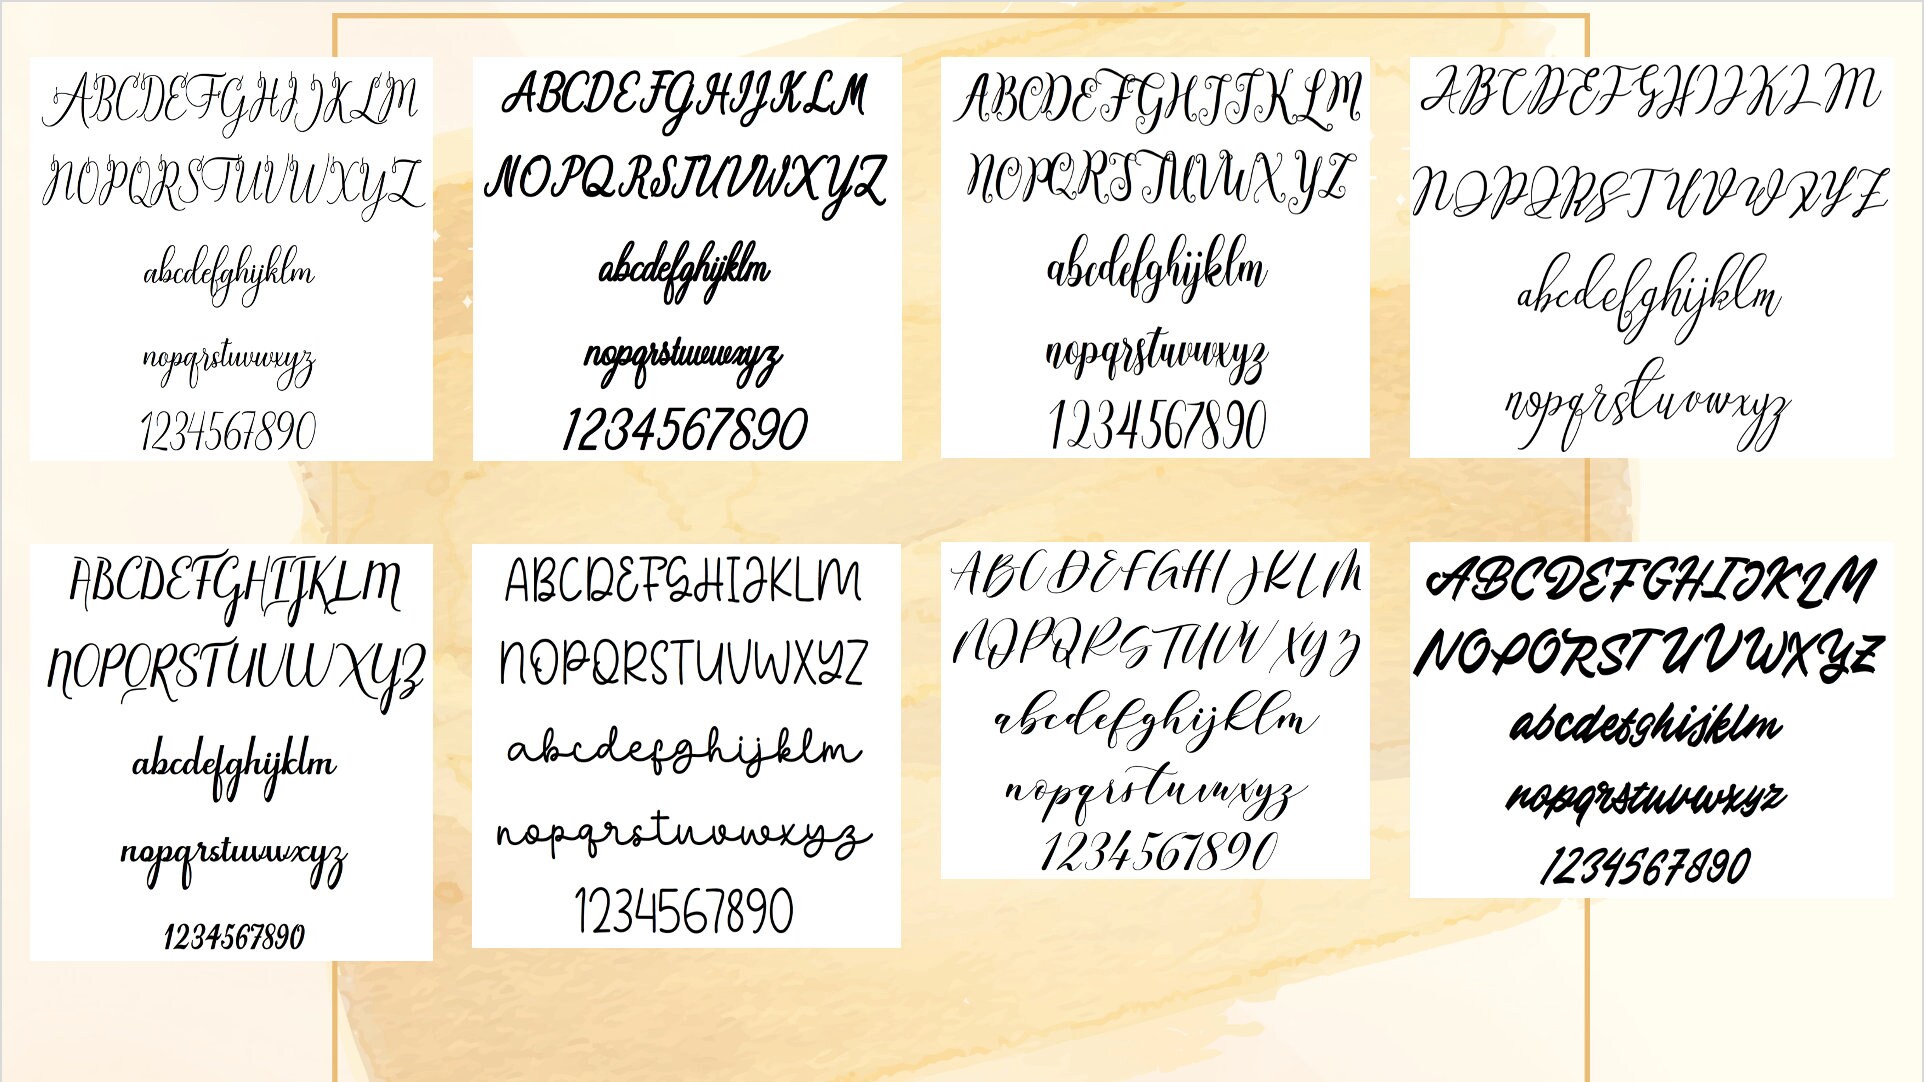 ABCDEFGHIJKLM
NOPQRSTUVWXYZ
abcdefghijklm
nopqrstuvwxyz
1234567890
ABCDEFGHIJKLM
NOPQRSTUVWXYZ
abcdefghijklm
nopqrstuvwxyz
1234567890
ABCDEFGHIJKLM
NOPQRSTUVWXYZ
abcdefghijklm
nopqrstuvwxyz
1234567890
ABCDEFGHIJKLM
NOPQRSTUVWXYZ
abcdefghijklm
nopqrstuvwxyz
ABCDEFGHIJKLM
NOPQRSTUVWXYZ
abcdefghijklm
nopqrstuvwxyz
1234567890
ABCDEFGHIJKLM
NOPQRSTUVWXYZ
abcdefghijklm
nopqrstuvwxyz
1234567890
ABCDEFGHIJKLM
NOPQRSTUVWXYZ
abcdefghijklm
nopqrstuvwxyz
1234567890
ABCDEFGHIJKLM
NOPQRSTUVWXYZ
abcdefghijklm
nopqrstuvwxyz
1234567890